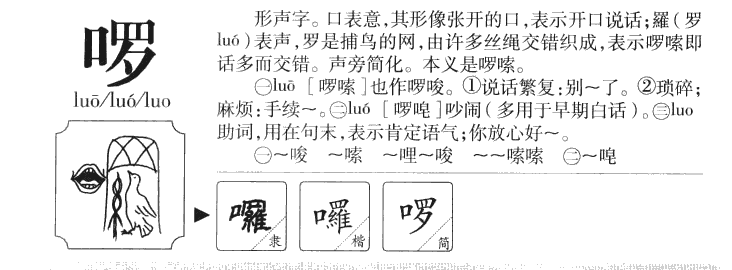 啰
luō/luó/luo
形声字。口表意,其形像张开的口,表示开口说话;羅(罗
luó)表声,罗是捕鸟的网,由许多丝绳交错织成,表示啰嗦即
话多而交错。声旁简化。本义是啰嗦。
㊀luō [啰嗦]也作啰唆。①说话繁复:别~了。②琐碎;
麻烦:手续~。㊁luó [啰唣]吵闹(多用于早期白话)。㊂luo
助词,用在句末,表示肯定语气;你放心好~。
㊀~唆 ~嗦 ~哩~唆 ~~嗦嗦 ㊁~唣
囉 隶
囉 楷
啰 简